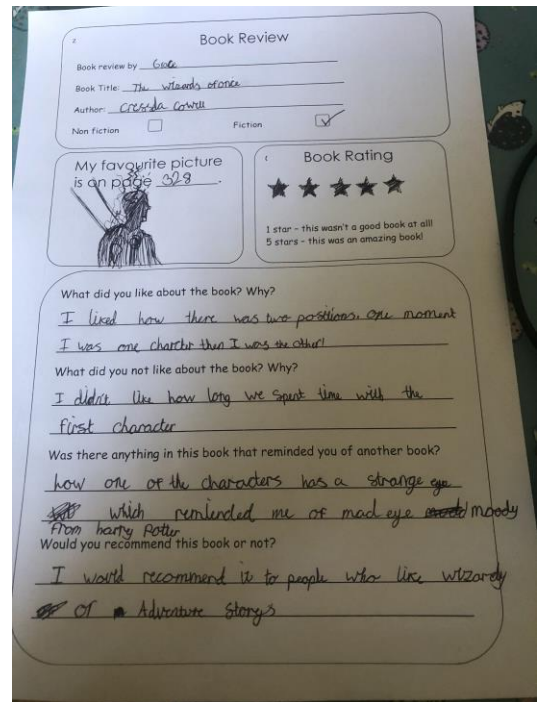 Book Review
Book review by Grace
Book Title: The wizards of once
Author: Cressida Cowell
Non fiction Fiction
My favourite picture
is on page 328.
Book Rating
1 star - this wasn't a good book at all!
5 stars - this was an amazing book!
What did you like about the book? Why?
I liked how there was two positions. One moment
I was one charcter then I was the other!
What did you not like about the book? Why?
I didn't like how long we spent time with the
first character
Was there anything in this book that reminded you of another book?
how one of the characters has a strange eye
which remiended me of mad eye moody
from harry Potter
Would you recommend this book or not?
I would recommend it to people who like wizardy
or Adventure storys